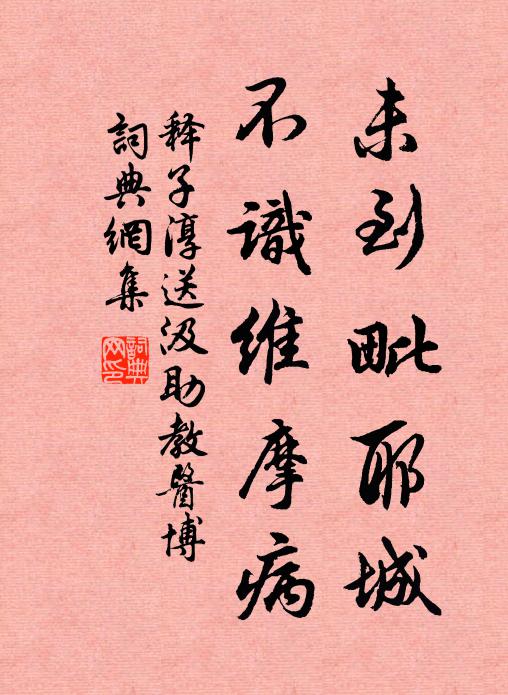 未到毗耶城
不識維摩病
释子淳送汲助教醫博
詞典網集
詞典網印